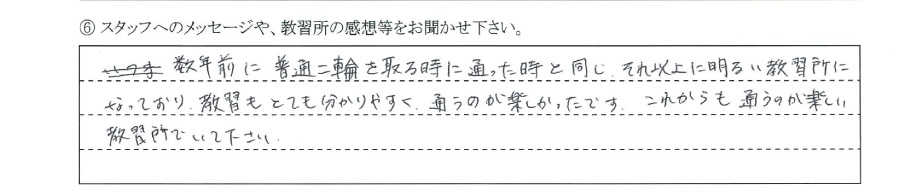 ⑥ スタッフへのメッセージや、教習所の感想等をお聞かせ下さい。
数年前に普通二輪を取る時に通った時と同じ、それ以上に明るい教習所に
なっており、教習もとても分かりやすく、通うのが楽しかったです。これからも通うのが楽しい
教習所でいて下さい。